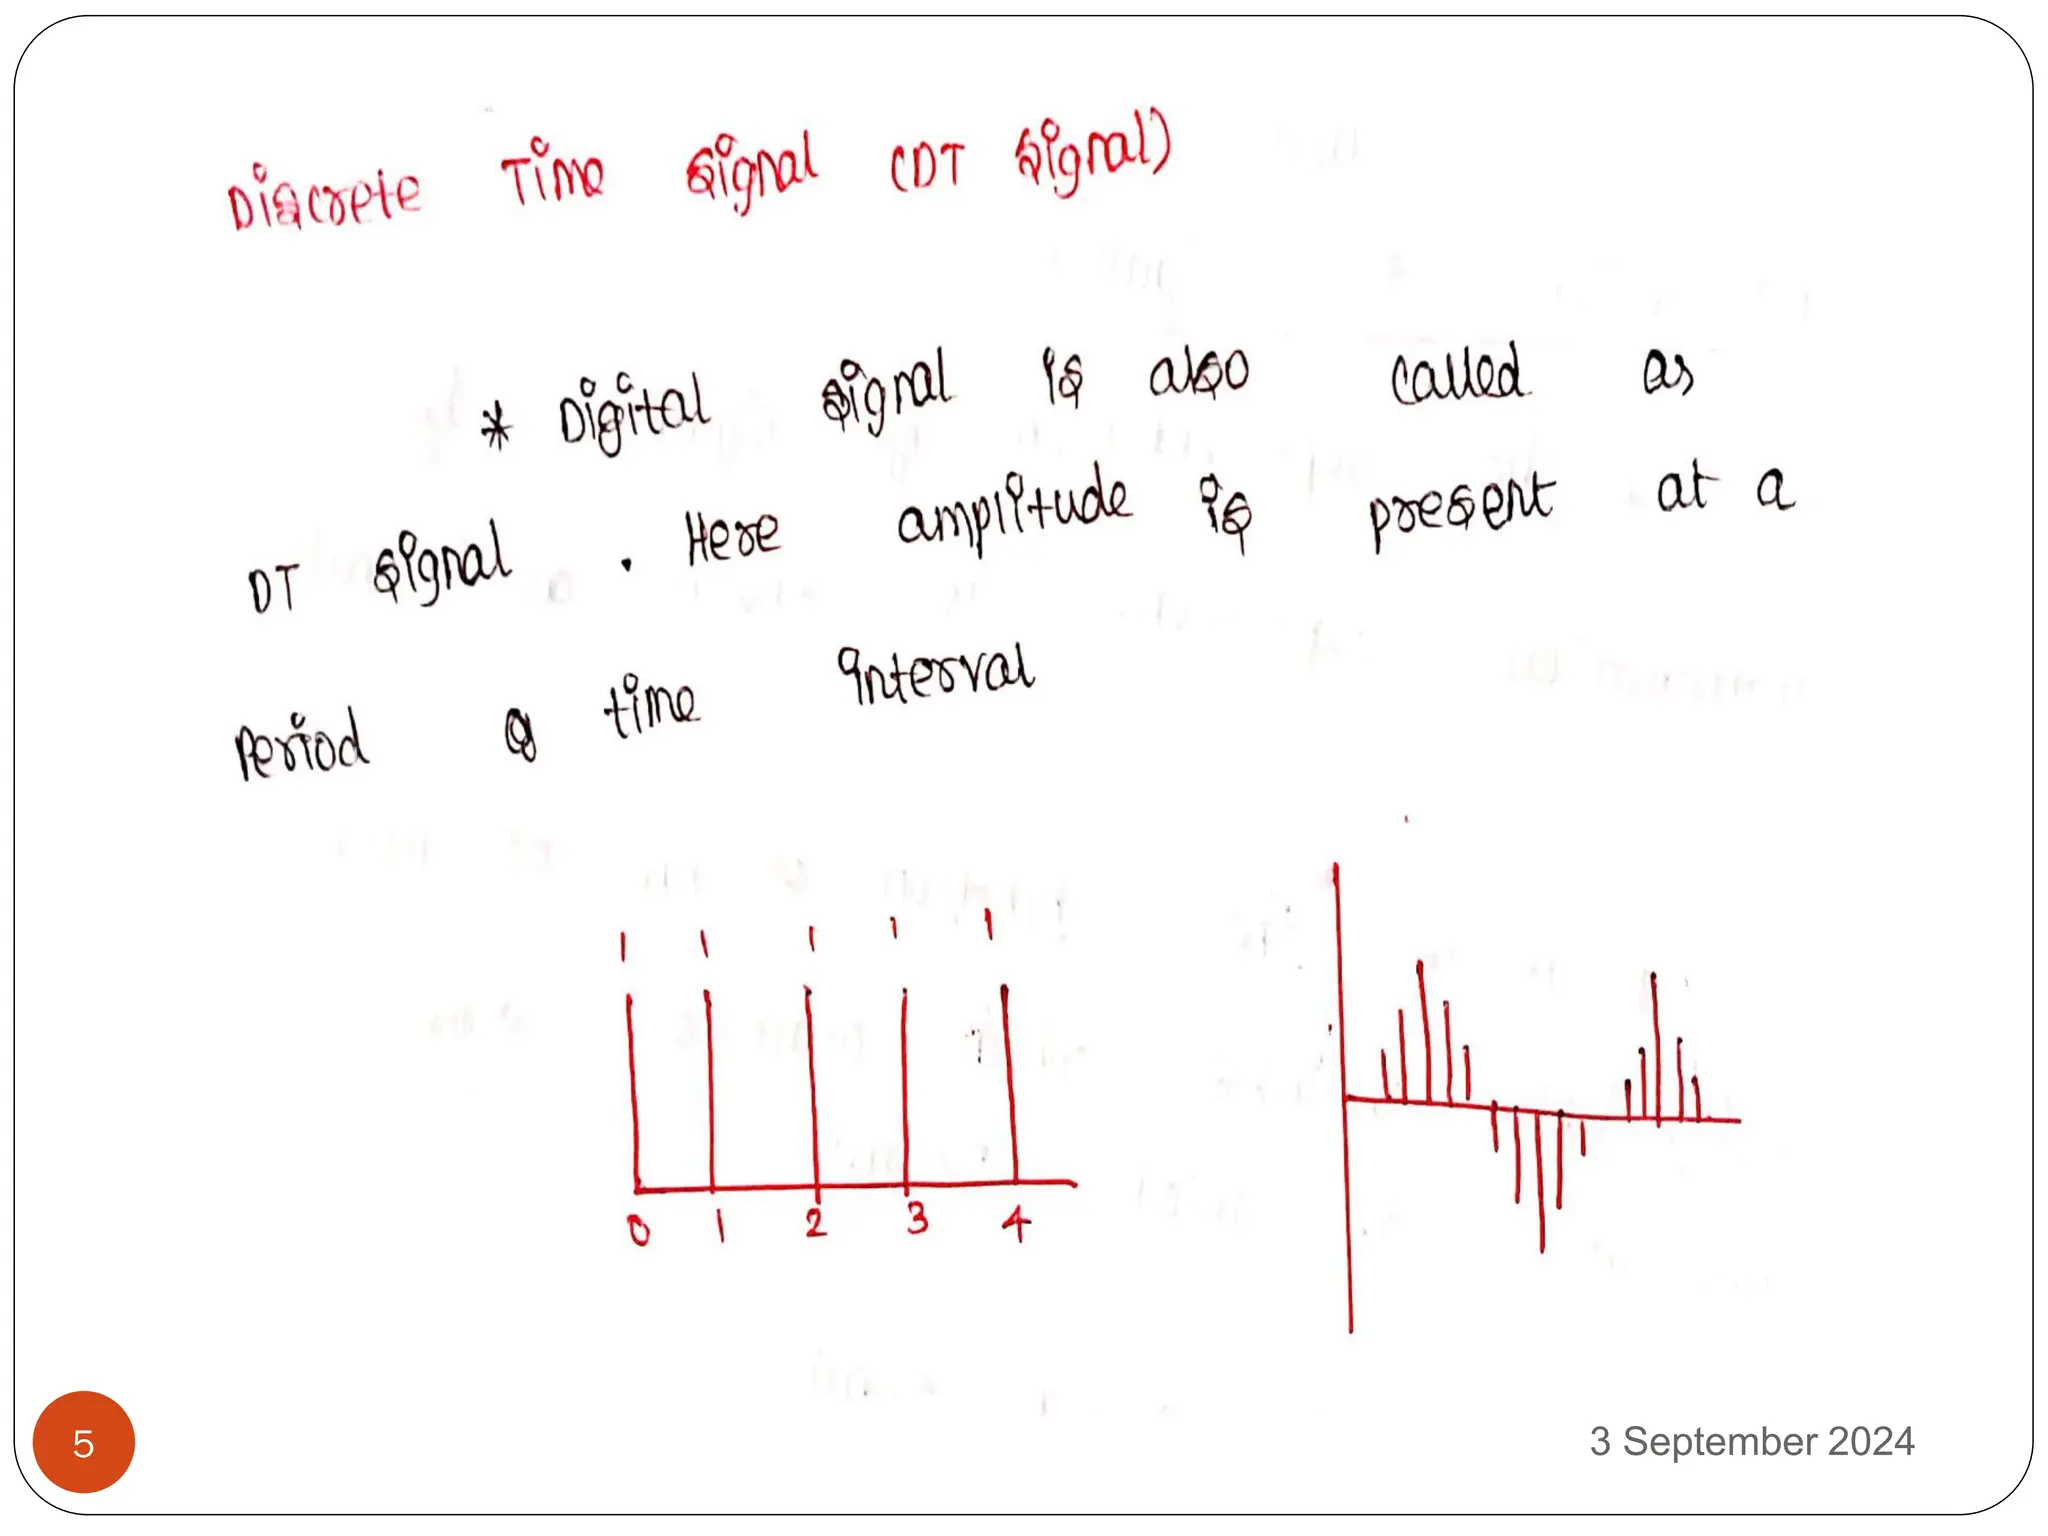 Discrete Time Signal (DT Signal)
* Digital signal is also called as
DT signal. Here amplitude is present at a
Period of time interval
1 1 1 1 1
0 1 2 3 4
5
3 September 2024